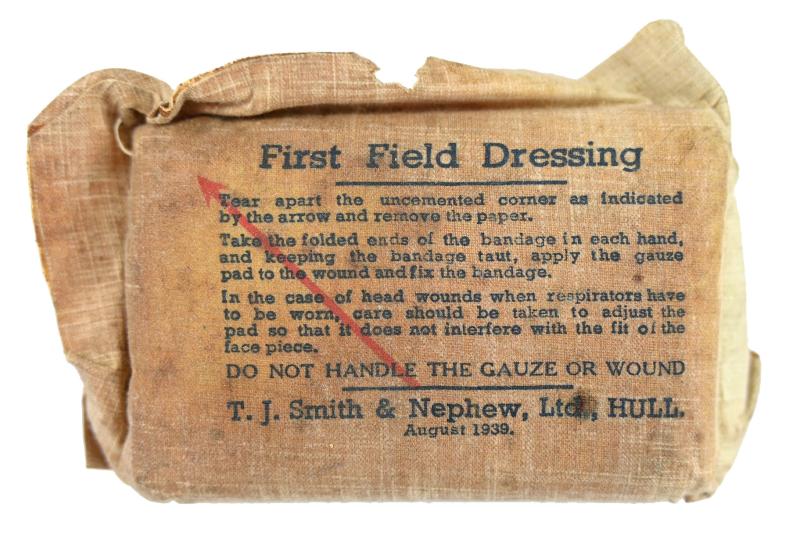 First Field Dressing
Tear apart the uncemented corner as indicated
by the arrow and remove the paper.
Take the folded ends of the bandage in each hand,
and keeping the bandage taut, apply the gauze
pad to the wound and fix the bandage.
In the case of head wounds when respirators have
to be worn, care should be taken to adjust the
pad so that it does not interfere with the fit of the
face piece.
DO NOT HANDLE THE GAUZE OR WOUND
T. J. Smith & Nephew, Ltd., HULL.
August 1939.